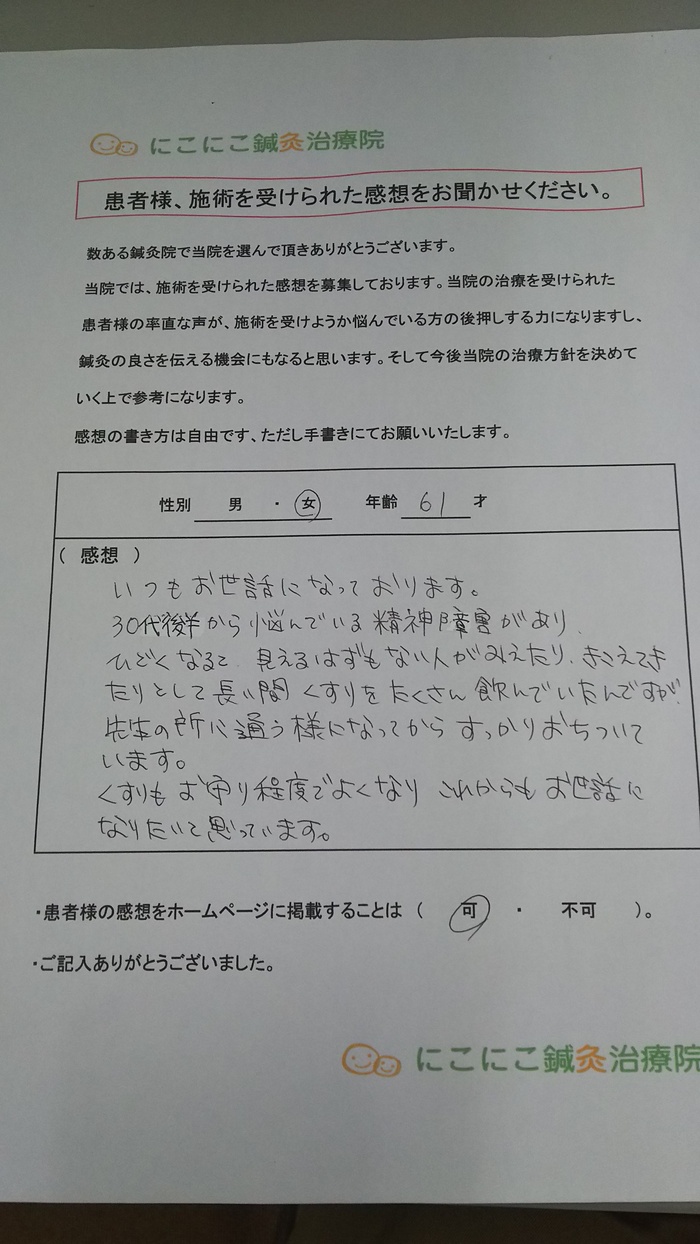 にこにこ鍼灸治療院
患者様、施術を受けられた感想をお聞かせください。
数ある鍼灸院で当院を選んで頂きありがとうございます。
当院では、施術を受けられた感想を募集しております。当院の治療を受けられた
患者様の率直な声が、施術を受けようか悩んでいる方の後押しする力になりますし、
鍼灸の良さを伝える機会にもなると思います。そして今後当院の治療方針を決めて
いく上で参考になります。
感想の書き方は自由です、ただし手書きにてお願いいたします。
性別 男 ・ 女 年齢 61 才
( 感想 )
いつもお世話になっております。
30代後半から悩んでいる精神障害があり、
ひどくなると、見えるはずもない人がみえたり、きこえてき
たりとして長い間くすりをたくさん飲んでいたんですが、
先生の所に通う様になってからすっかりおちついて
います。
くすりもお守り程度でよくなり これからもお世話に
なりたいと思っています。
・患者様の感想をホームページに掲載することは ( 可 ・ 不可 )。
・ご記入ありがとうございました。
にこにこ鍼灸治療院